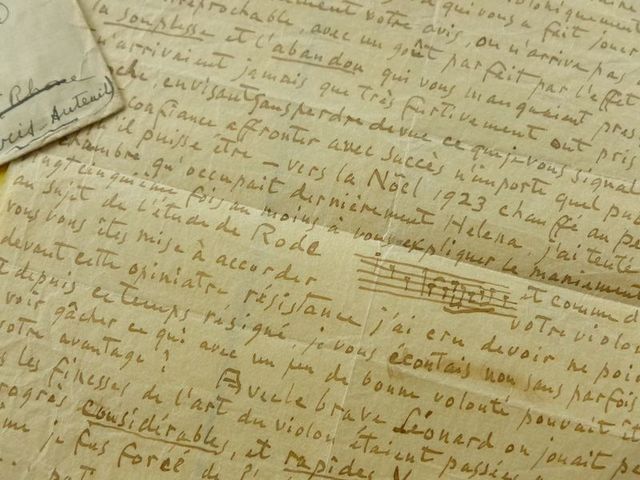 qui vous a fait jouer
irréprochable, avec un goût parfait par l'effet
la souplesse et l'abandon qui vous manquaient
n'arrivaient jamais que très furtivement ont pris
envisant sans perdre de vue ce que je vous signal
confiance affronter avec succès n'importe quel
qu'il puisse être – vers la Noël 1923 chauffé au
chambre qu'occupait dernièrement Helena. j'ai tenté
vingt cinquième fois au moins à vous expliquer le maniement
au sujet de l'étude de Rode et comme
vous vous êtes mise à accorder votre violon
devant cette opiniatre résistance j'ai cru devoir ne
depuis ce temps résigné je vous écoutais non sans parfois
voir gâcher ce qui avec un peu de bonne volonté pouvait
votre avantage? Avec le brave Léonard on jouait
les finesses de l'art du violon étaient passées
progrès considérables, et rapides
je fus forcé de
Rhone
Auteuil)